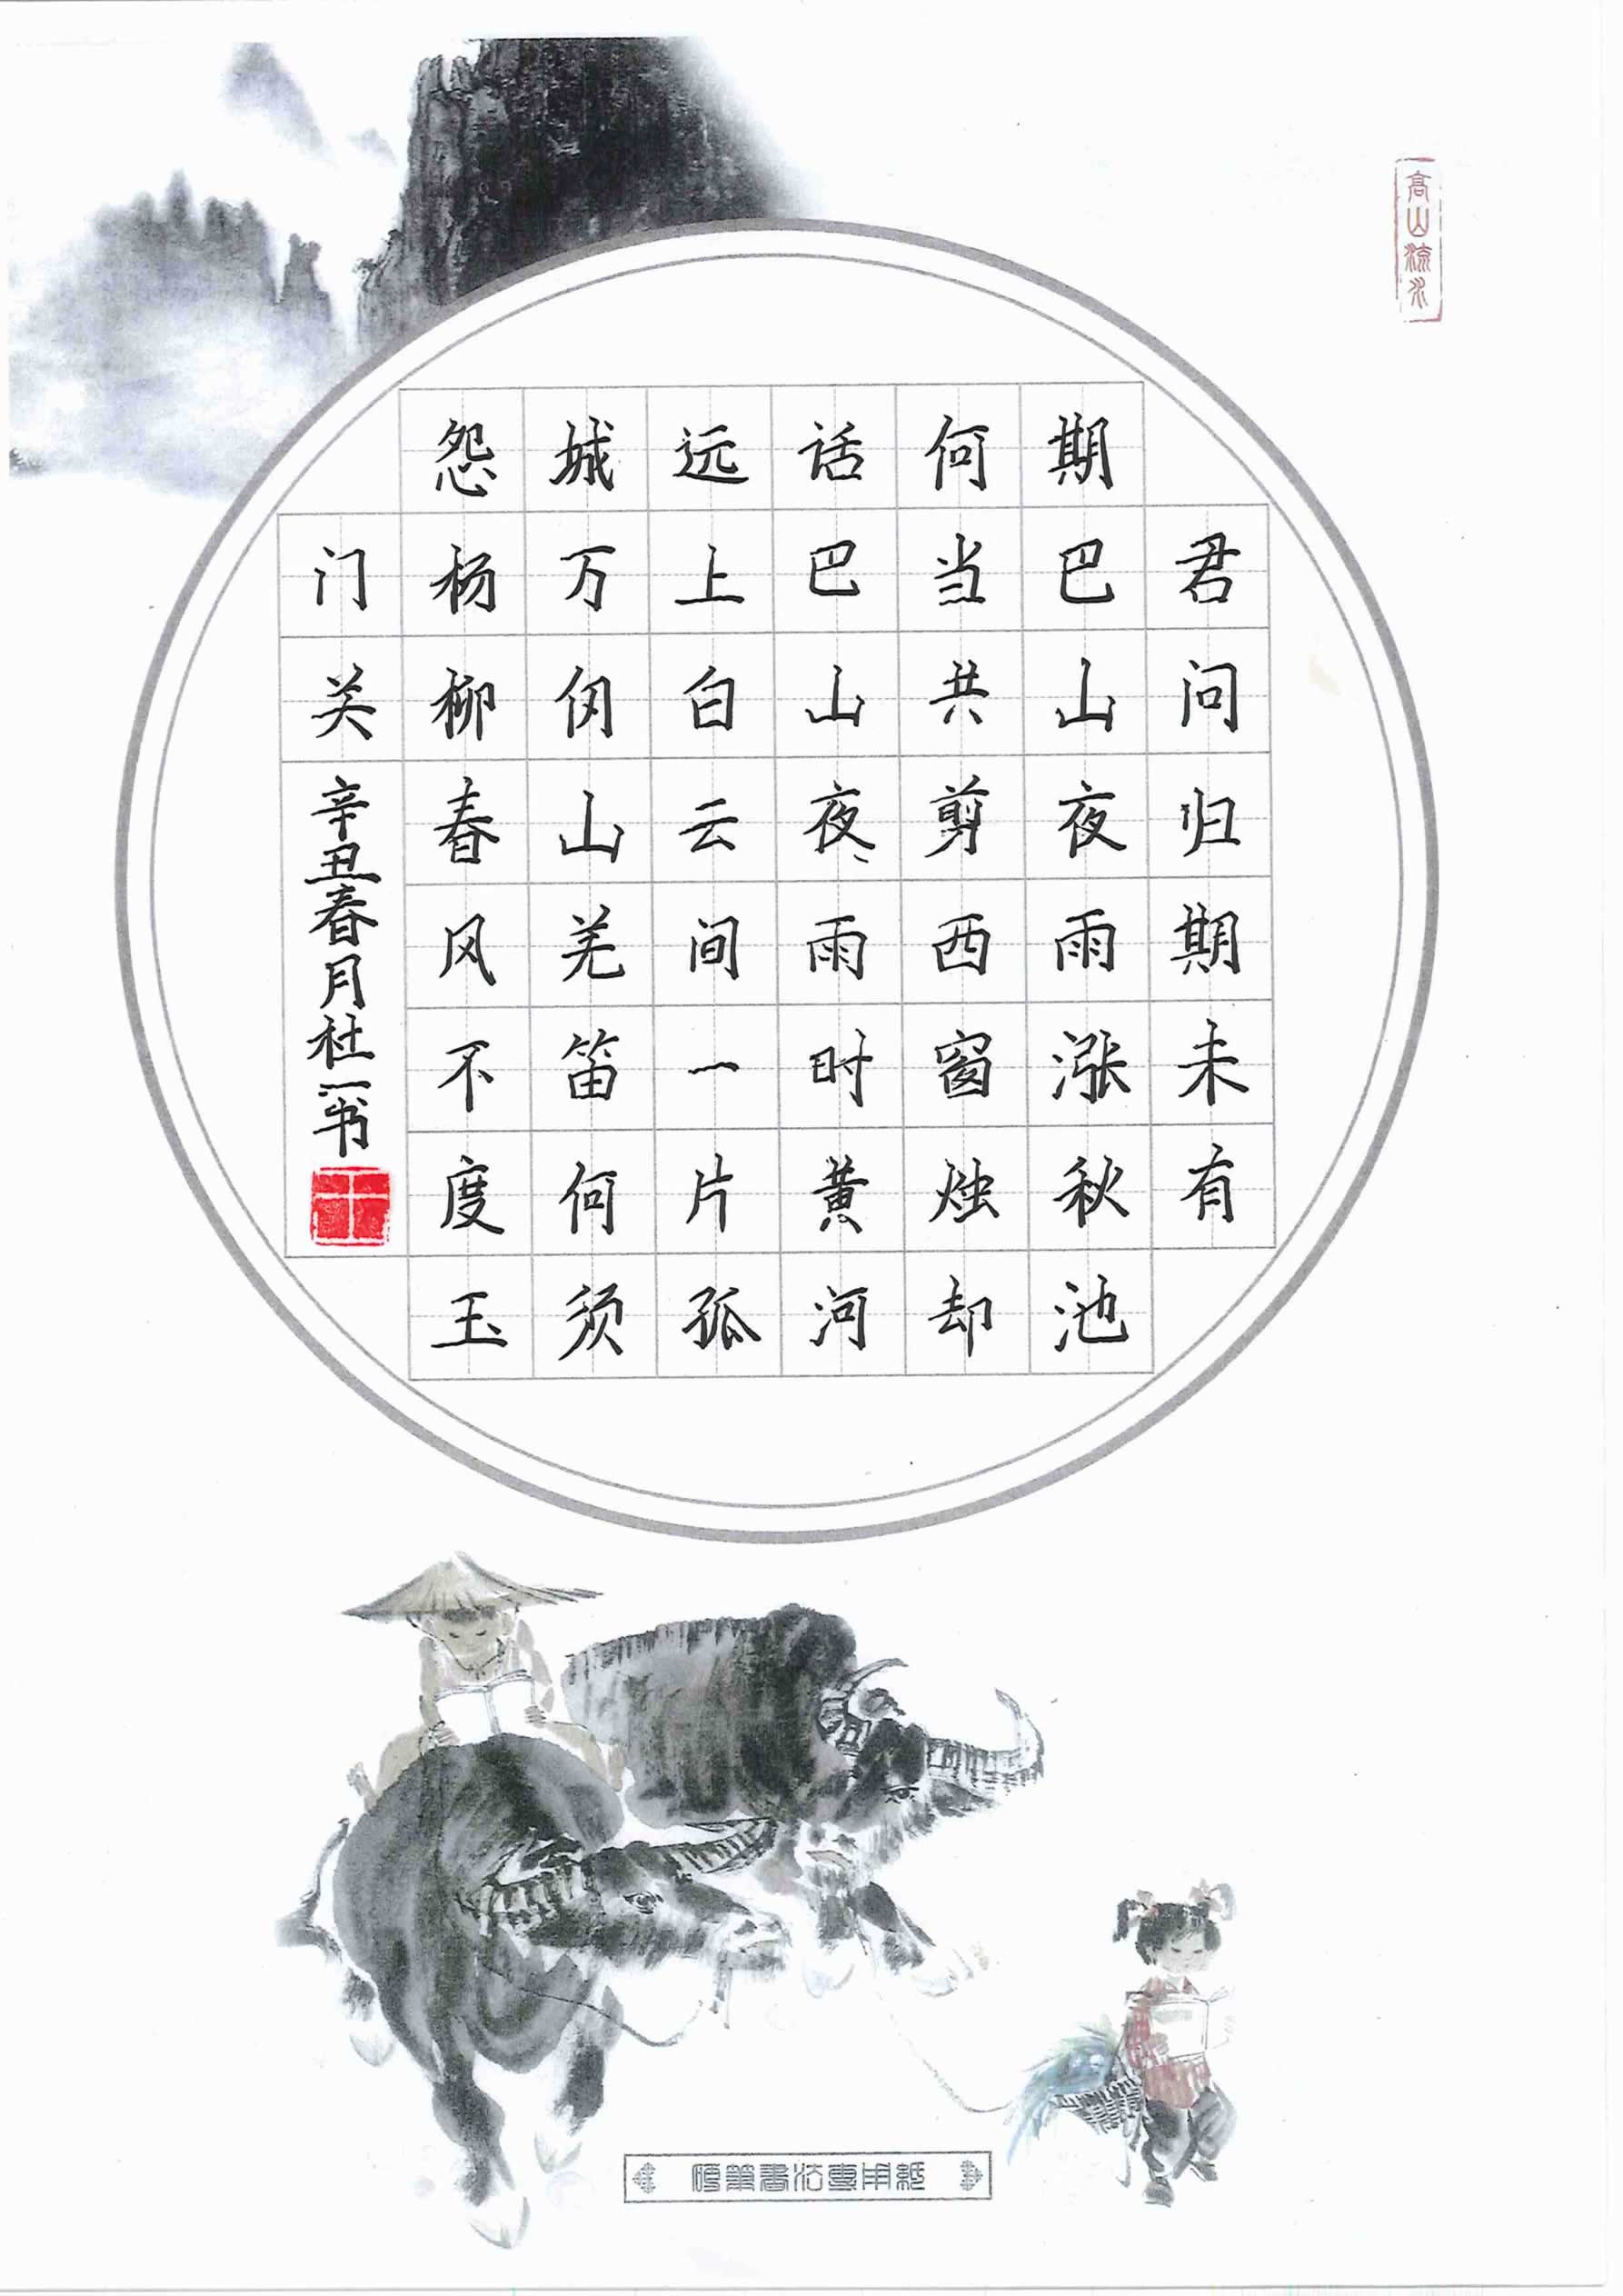 高山流水
君问归期未有
期巴山夜雨涨秋池
何当共剪西窗烛却
话巴山夜雨时黄河
远上白云间一片孤
城万仞山羌笛何须
怨杨柳春风不度玉
门关
辛丑春月杜一书
硬筆書法專用紙